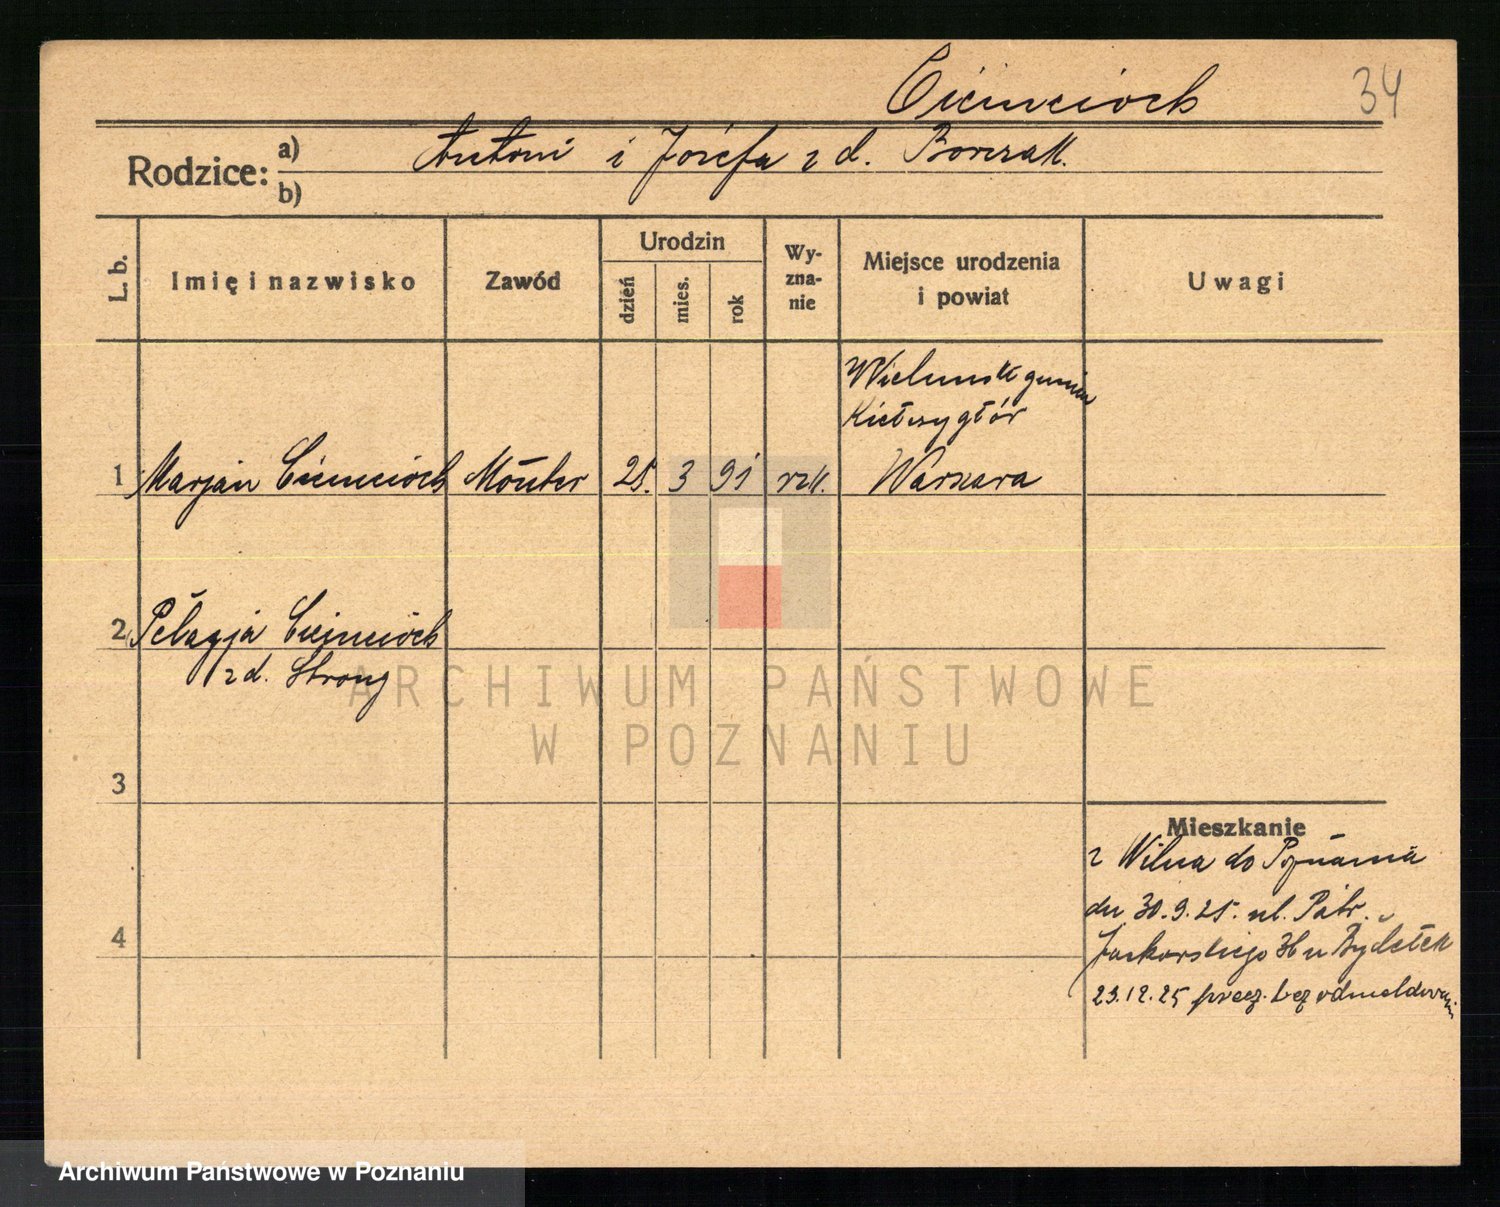 Ciemcioch 34
Rodzice: a) Antoni i Józefa z d. Borczak.
b)
L. b.
Imię i nazwisko
Zawód
Urodzin
dzień
mies.
rok
Wy-
zna-
nie
Miejsce urodzenia
i powiat
Uwagi
Wielunsk gmina
Kiełczygłór
1 Marjan Ciemcioch Monter 25. 3 91 rzk. Warszawa
2 Pelagja Ciemcioch
z d. Strong
3
4
Mieszkanie
z Wilna do Poznania
dn 30.9.25. ul. Patr.
Jackowskiego 36 u
23.12.25 bez odmeldowania
ARCHIWUM PAŃSTWOWE
W POZNANIU
Archiwum Państwowe w Poznaniu